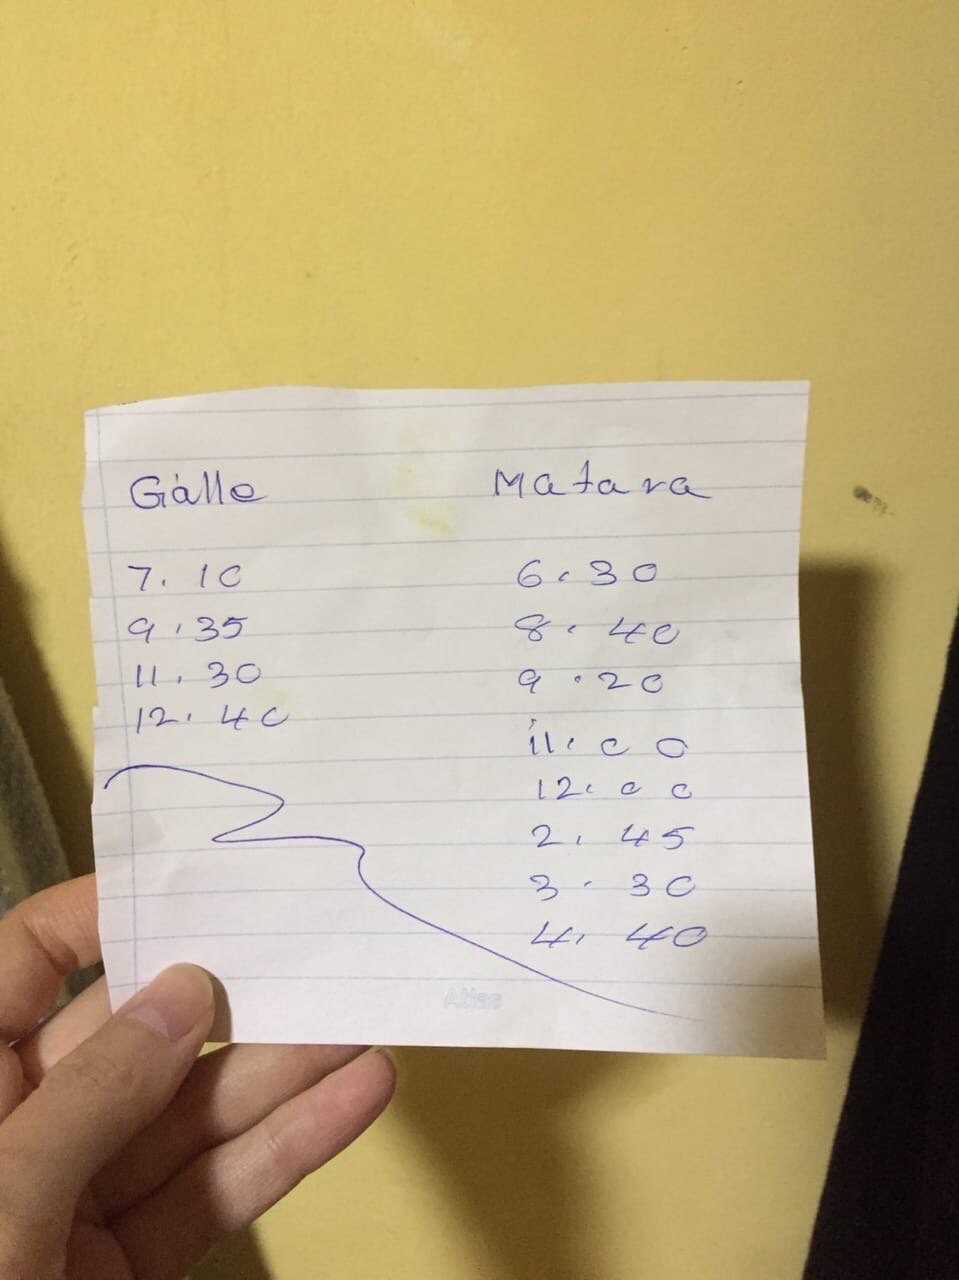 Galle Matara
7.10 6.30
9.35 8.40
11.30 9.20
12.40 11.00
12.00
2.45
3.30
4.40
Atlas